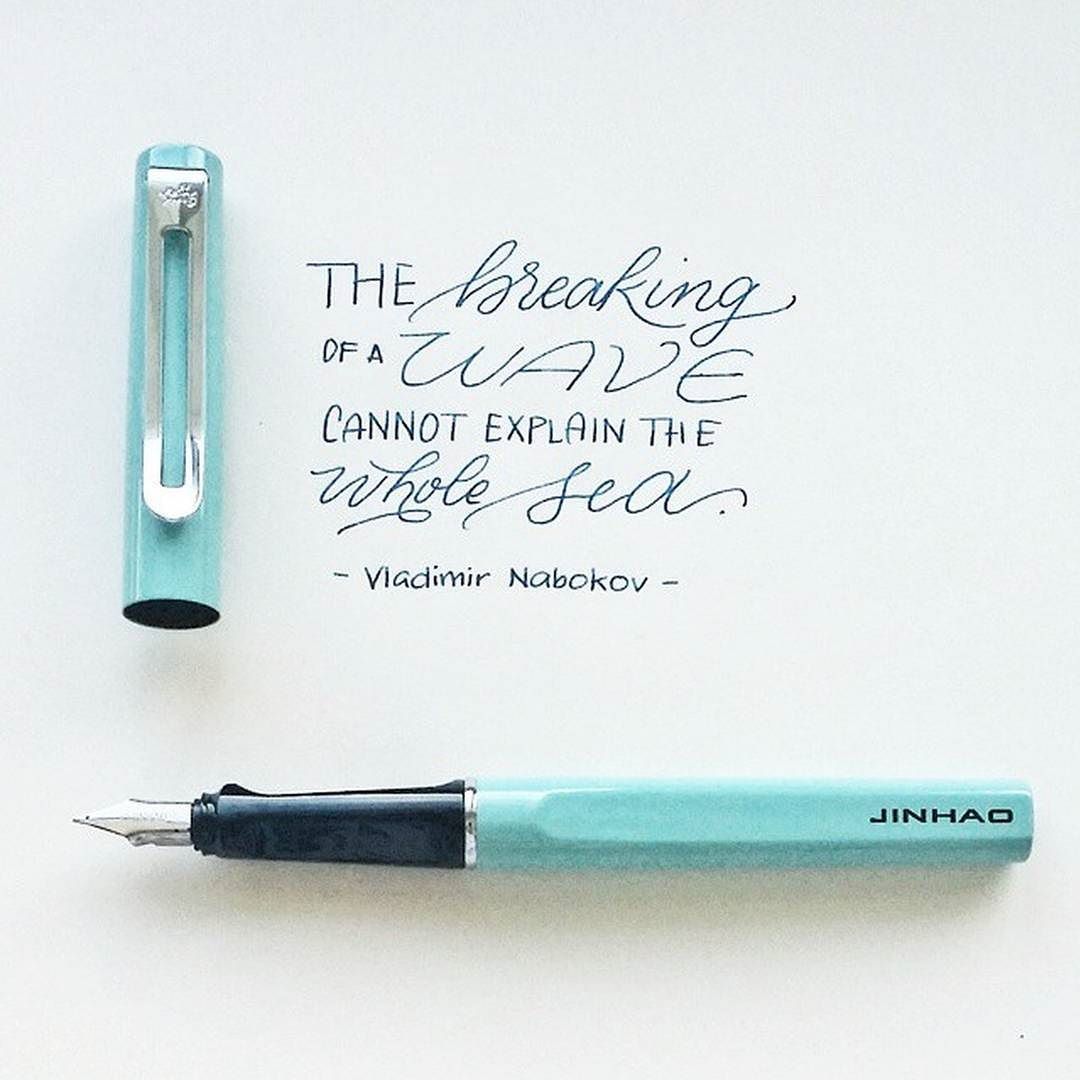 THE breaking
OF A WAVE
CANNOT EXPLAIN THE
whole sea.
- Vladimir Nabokov -
JINHAO